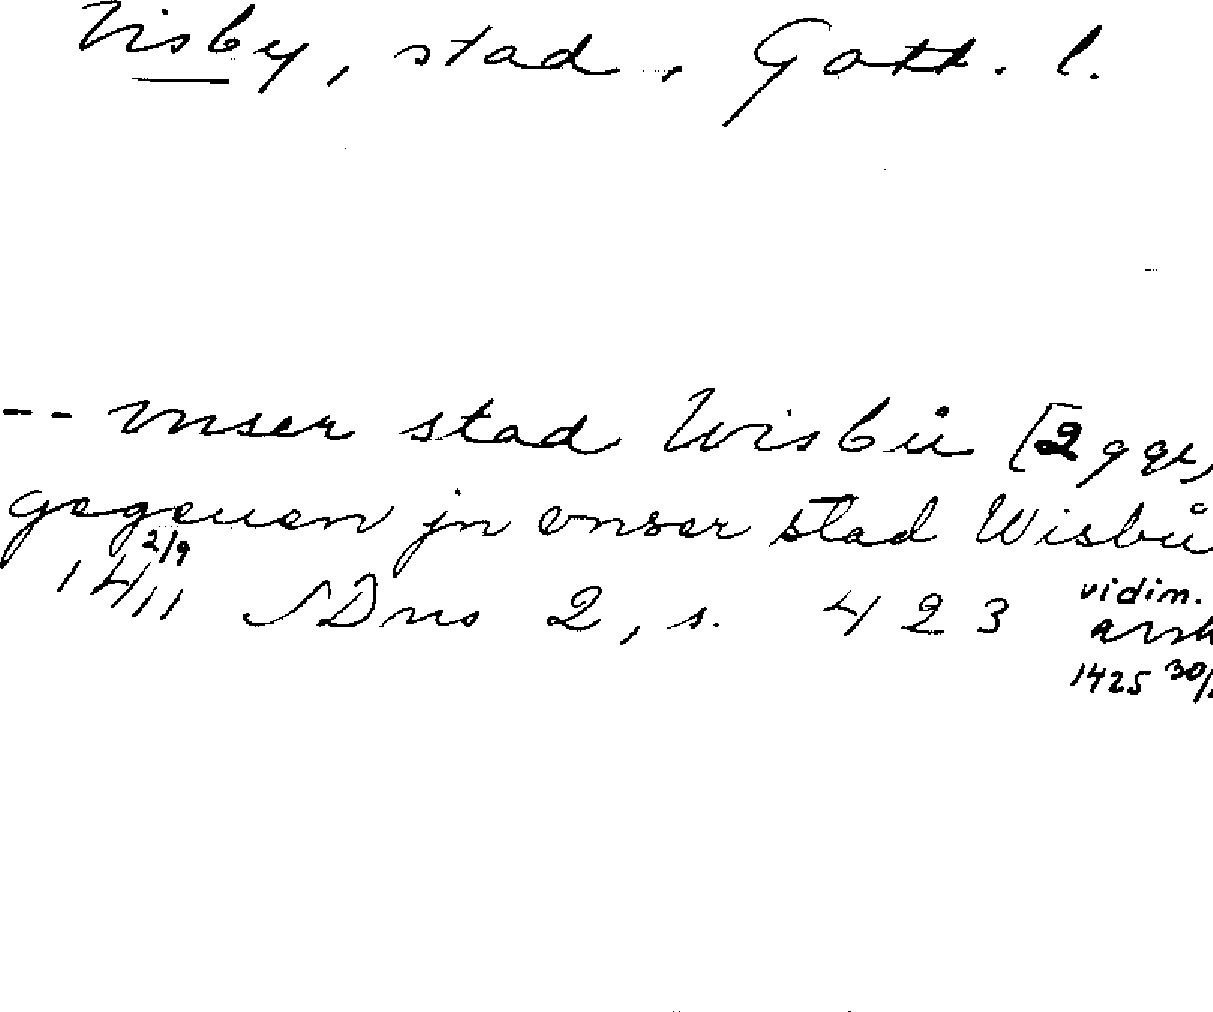 Visby, stad, Gotl. l.
-- vnser stad Wisbů [2 ggr,
gegeuen jn vnser stad Wisbů
1411 2/9 SDns 2, s. 423 vidim.
1425 30/